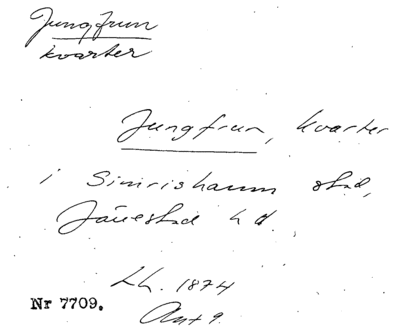 Jungfrun
kvarter
Jungfrun, kvarter
i Simrishamn stad,
Järrestad hd.
Lh. 1874
Ant 9.
Nr 7709.